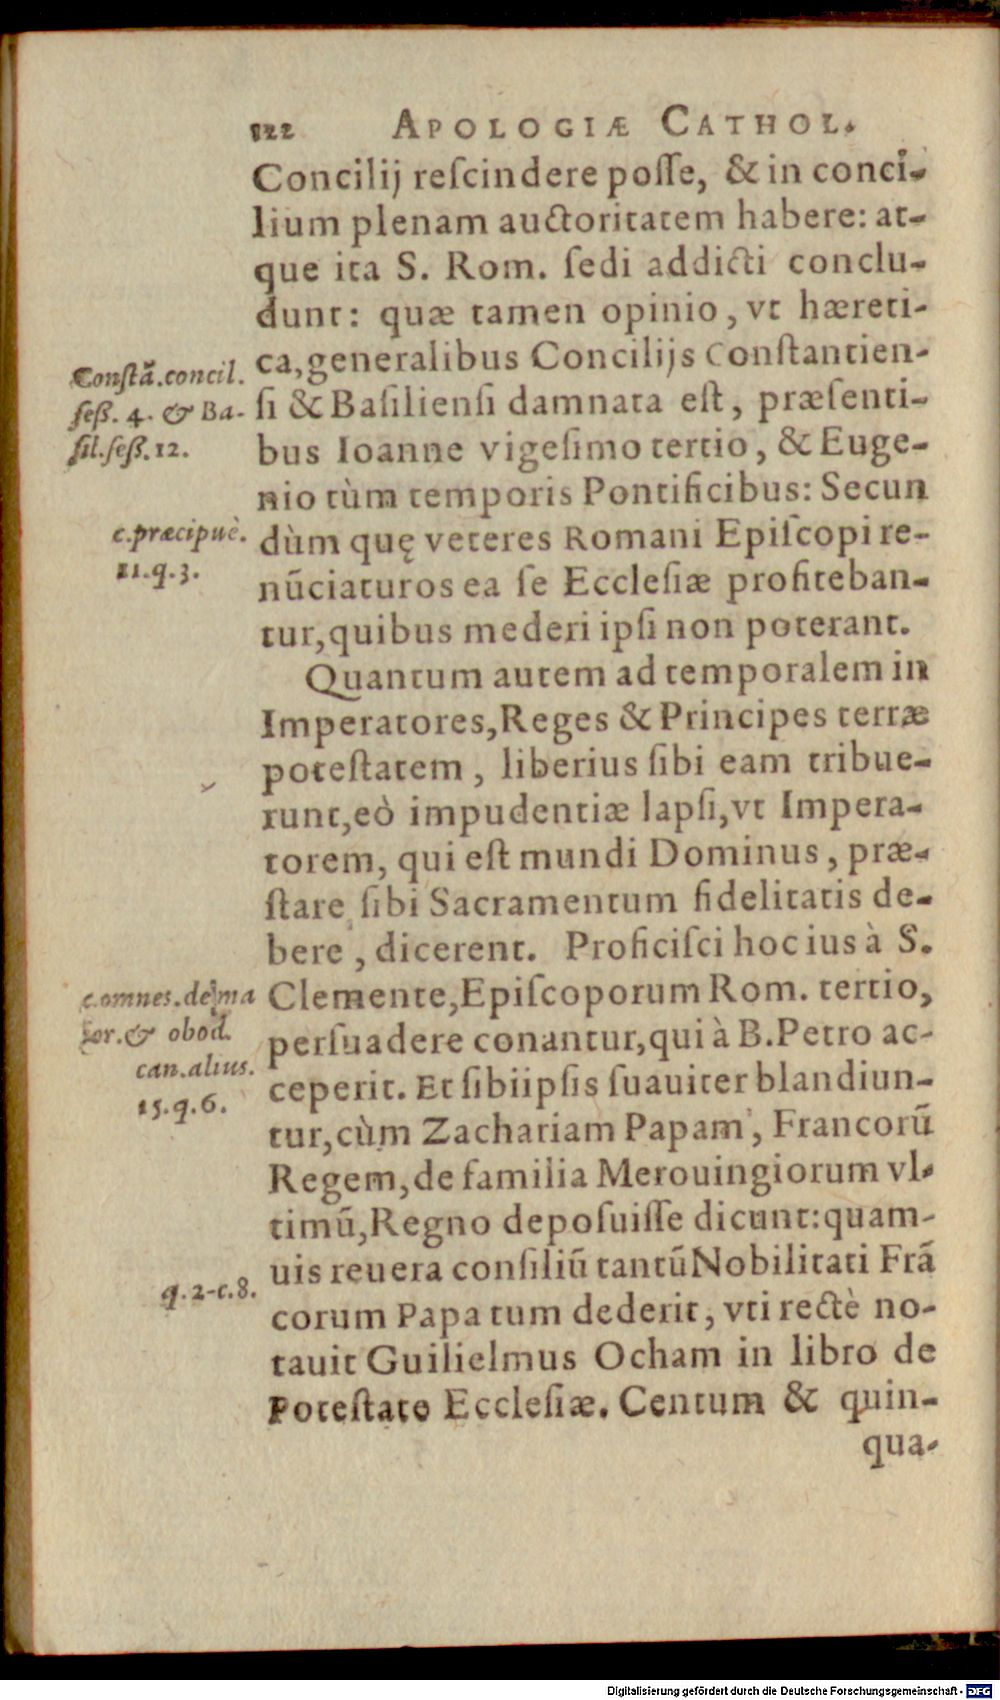 122 APOLOGIÆ CATHOL.
Concilij reſcindere poſſe, & in conci-
lium plenam auctoritatem habere: at-
que ita S. Rom. ſedi addicti conclu-
dunt: quæ tamen opinio, vt hæreti-
ca, generalibus Concilijs Conſtantien-
ſi & Baſilienſi damnata eſt, præſenti-
bus Ioanne vigeſimo tertio, & Euge-
nio tùm temporis Pontificibus: Secun
dùm quę veteres Romani Epiſcopi re-
nũciaturos ea ſe Eccleſiæ profiteban-
tur, quibus mederi ipſi non poterant.
Quantum autem ad temporalem in
Imperatores, Reges & Principes terræ
poteſtatem, liberius ſibi eam tribue-
runt, eò impudentiæ lapſi, vt Impera-
torem, qui eſt mundi Dominus, præ-
ſtare ſibi Sacramentum fidelitatis de-
bere, dicerent. Proficiſci hoc ius à S.
Clemente, Epiſcoporum Rom. tertio,
perſuadere conantur, qui à B. Petro ac-
ceperit. Et ſibiipſis ſuauiter blandiun-
tur, cùm Zachariam Papam, Francorũ
Regem, de familia Merouingiorum vl-
timũ, Regno depoſuiſſe dicunt: quam-
uis reuera conſiliũ tantũ Nobilitati Frã
corum Papa tum dederit, vti rectè no-
tauit Guilielmus Ocham in libro de
Poteſtate Eccleſiæ. Centum & quin-
qua-
Conſtã. concil.
ſeß. 4. & Ba-
ſil. ſeß. 12.
c. præcipuè.
11. q. 3.
c. omnes. de ma
ior. & obod.
can. alius.
15. q. 6.
q. 2-c. 8.
Digitalisierung gefördert durch die Deutsche Forschungsgemeinschaft - DFG